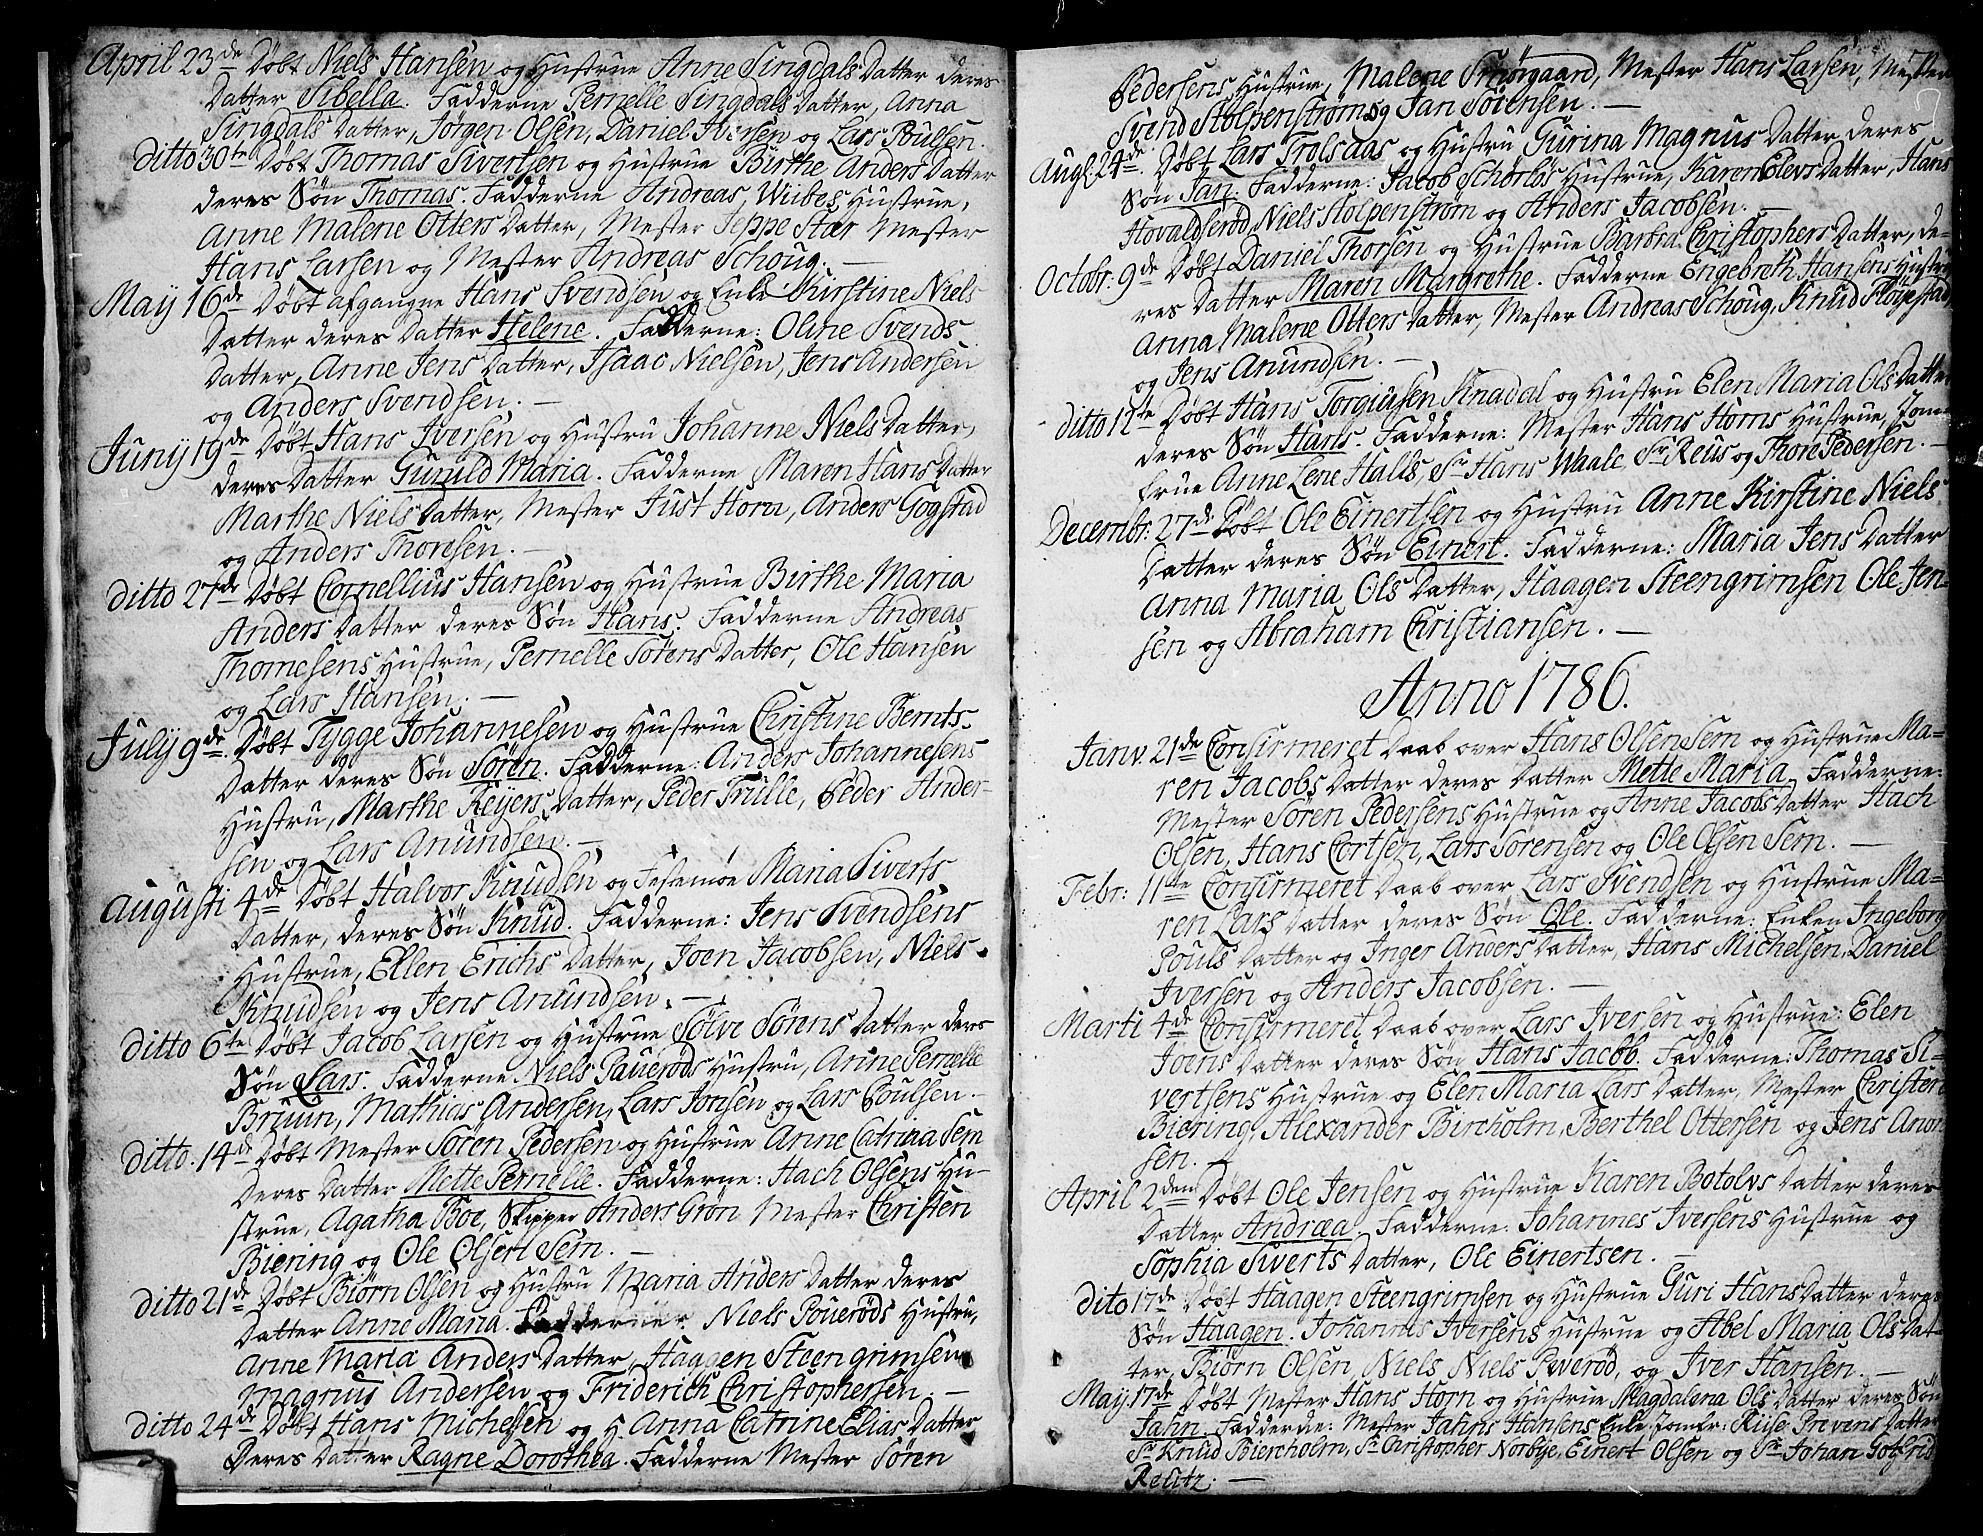 April 23de Døbt Niels Hansen og Hustrue Anne Singdals Datter deres
Datter Sibella. Fadderne Pernelle Singdals Datter, Anna
Singdals Datter, Jørgen Olsen, Daniel Iversen og Lars Poulsen.
ditto 30te Døbt Thomas Sivertsen og Hustrue Birthe Anders Datter
deres Søn Thomas. Fadderne Andreas Wiibes Hustrue,
Anne Malene Otters Datter, Mester Jeppe Stær Mester
Hans Larsen og Mester Andreas Schoug. —
May 16de Døbt afgangne Hans Svendsen og Enke Kirstine Niels
Datter deres Datter Helene. Fadderne: Oline Svends
Datter, Anne Jens Datter, Isaac Nielsen, Jens Andersen
og Anders Svendsen. —
Juny 19de Døbt Hans Iversen og Hustru Johanne Niels Datter,
deres Datter Gunild Maria. Fadderne Maren Hans Datter
Marthe Niels Datter, Mester Just Horn, Anders Gogstad
og Anders Thoresen. —
ditto 27de Døbt Cornellius Hansen og Hustrue Birthe Maria
Anders Datter deres Søn Hans. Fadderne Andreas
Thomesens Hustrue, Pernelle Sørens Datter, Ole Hansen
og Lars Hansen. —
July 9de Døbt Tygge Johannesen og Hustrue Christine Bernts
Datter deres Søn Søren. Fadderne: Anders Johannesens
Hustru, Marthe Reyers Datter, Peder Trulle, Peder Ander-
sen og Lars Anundsen. —
Augusti 4de Døbt Halvor Knudsen og Festemøe Maria Siverts
Datter, deres Søn Knud. Fadderne: Jens Svendsens
Hustrue, Ellen Erichs Datter, Joen Jacobsen, Niels
Knudsen og Jens Anundsen. —
ditto 6te Døbt Jacob Larsen og Hustrue Sølve Sørens Datter deres
Søn Lars. Fadderne Niels Pauerøds Hustru, Anne Pernelle
Bruun, Mathias Andersen, Lars Jonsen og Lars Poulsen. —
ditto. 14de Døbt Mester Søren Pedersen og Hustrue Anne Catrina Sem
Deres Datter Mette Pernelle. Fadderne: Hach Olsens Hu-
strue, Agatha Boe, Skipper Anders Grøn Mester Christen
Biering og Ole Olsen Sem. —
ditto 21de Døbt Biørn Olsen og Hustru Maria Anders Datter deres
Datter Anne Maria. Fadderne Niels Pouerøds Hustru,
Anne Maria Anders Datter, Haagen Steengrimsen
Magnus Andersen og Friderich Christophersen. —
ditto 24de Døbt Hans Michelsen og H. Anna Catrine Elias Datter
Deres Datter Ragne Dorothea. Fadderne Mester Søren
Pedersens Hustrue, Malene Smørgaard, Mester Hans Larsen, Mester
Svend Stolpenstrøm og Jan Sørensen. —
Augl. 24de Døbt Lars Trolsaas og Hustru Gurina Magnus Datter deres
Søn Jan. Fadderne: Jacob Schørløs Hustrue, Karen Elevs Datter, Hans
Hovaldserød, Niels Stolpenstrøm og Anders Jacobsen. —
Octobr: 9de Døbt Daniel Thorsen og Hustrue Barbra Christophers Datter, de-
res Datter Maren Margrethe. Fadderne Engebreth Hansens Hustru
Anna Malene Otters Datter, Mester Andreas Schoug, Knud Fløyestad
og Jens Anundsen. —
ditto 12te Døbt Hans Torgiusen Knadal og Hustru Elen Maria Ols Datter
deres Søn Hans. Fadderne: Mester Hans Horns Hustrue, Jom-
frue Anne Lene Halls, Sr Hans Waale, Sr Reus og Thore Pedersen. —
Decembr: 27de Døbt Ole Einertsen og Hustru Anne Kirstine Niels
Datter deres Søn Einert. Fadderne: Maria Jens Datter
Anna Maria Ols Datter, Haagen Steengrimsen Ole Jen-
sen og Abraham Christiansen. —
Anno 1786.
Janv. 21de Confirmeret Daab over Hans Olsen Sem og Hustrue Ma-
ren Jacobs Datter deres Datter Mette Maria. Fadderne:
Mester Søren Pedersens Hustrue og Anne Jacobs Datter Hach
Olsen, Hans Cortsen, Lars Sørensen og Ole Olsen Sem. —
Febr: 11te Confirmeret Daab over Lars Svendsen og Hustrue Ma-
ren Lars Datter deres Søn Ole. Fadderne: Enken Ingeborg
Pouls Datter og Inger Anders Datter, Hans Michelsen, Daniel
Iversen og Anders Jacobsen. —
Marti 4de Confirmeret Daab over Lars Iversen og Hustrue: Elen
Joens Datter deres Søn Hans Jacob. Fadderne: Thomas Si-
vertsens Hustrue og Elen Maria Lars Datter, Mester Christen
Biering, Alexander Bircholm, Berthel Ottersen og Jens Anon
sen. —
April 2den Døbt Ole Jensen og Hustrue Karen Botolvs Datter deres
Datter Andræa. Fadderne: Johannes Iversens Hustrue og
Sophia Siverts Datter, Ole Einertsen. —
Dito 17de Døbt Haagen Steengrimsen og Hustrue Guri Hans Datter deres
Søn Haagen. Johannes Iversens Hustrue og Abel Maria Ols Dat-
ter, Biørn Olsen, Niels Niels Pøverød, og Iver Hansen. —
May 17de Døbt Mester Hans Horn og Hustrue Magdalena Ols Datter deres Søn
Jahn. Fadderde: Mester Jahns Hansens Enke, Jomfr: Ruse Prevens Datter
Sr Knud Biercholm, Sr Christopher Norbye, Einert Olsen og Sr Johan Gotfrid
Relitz. —